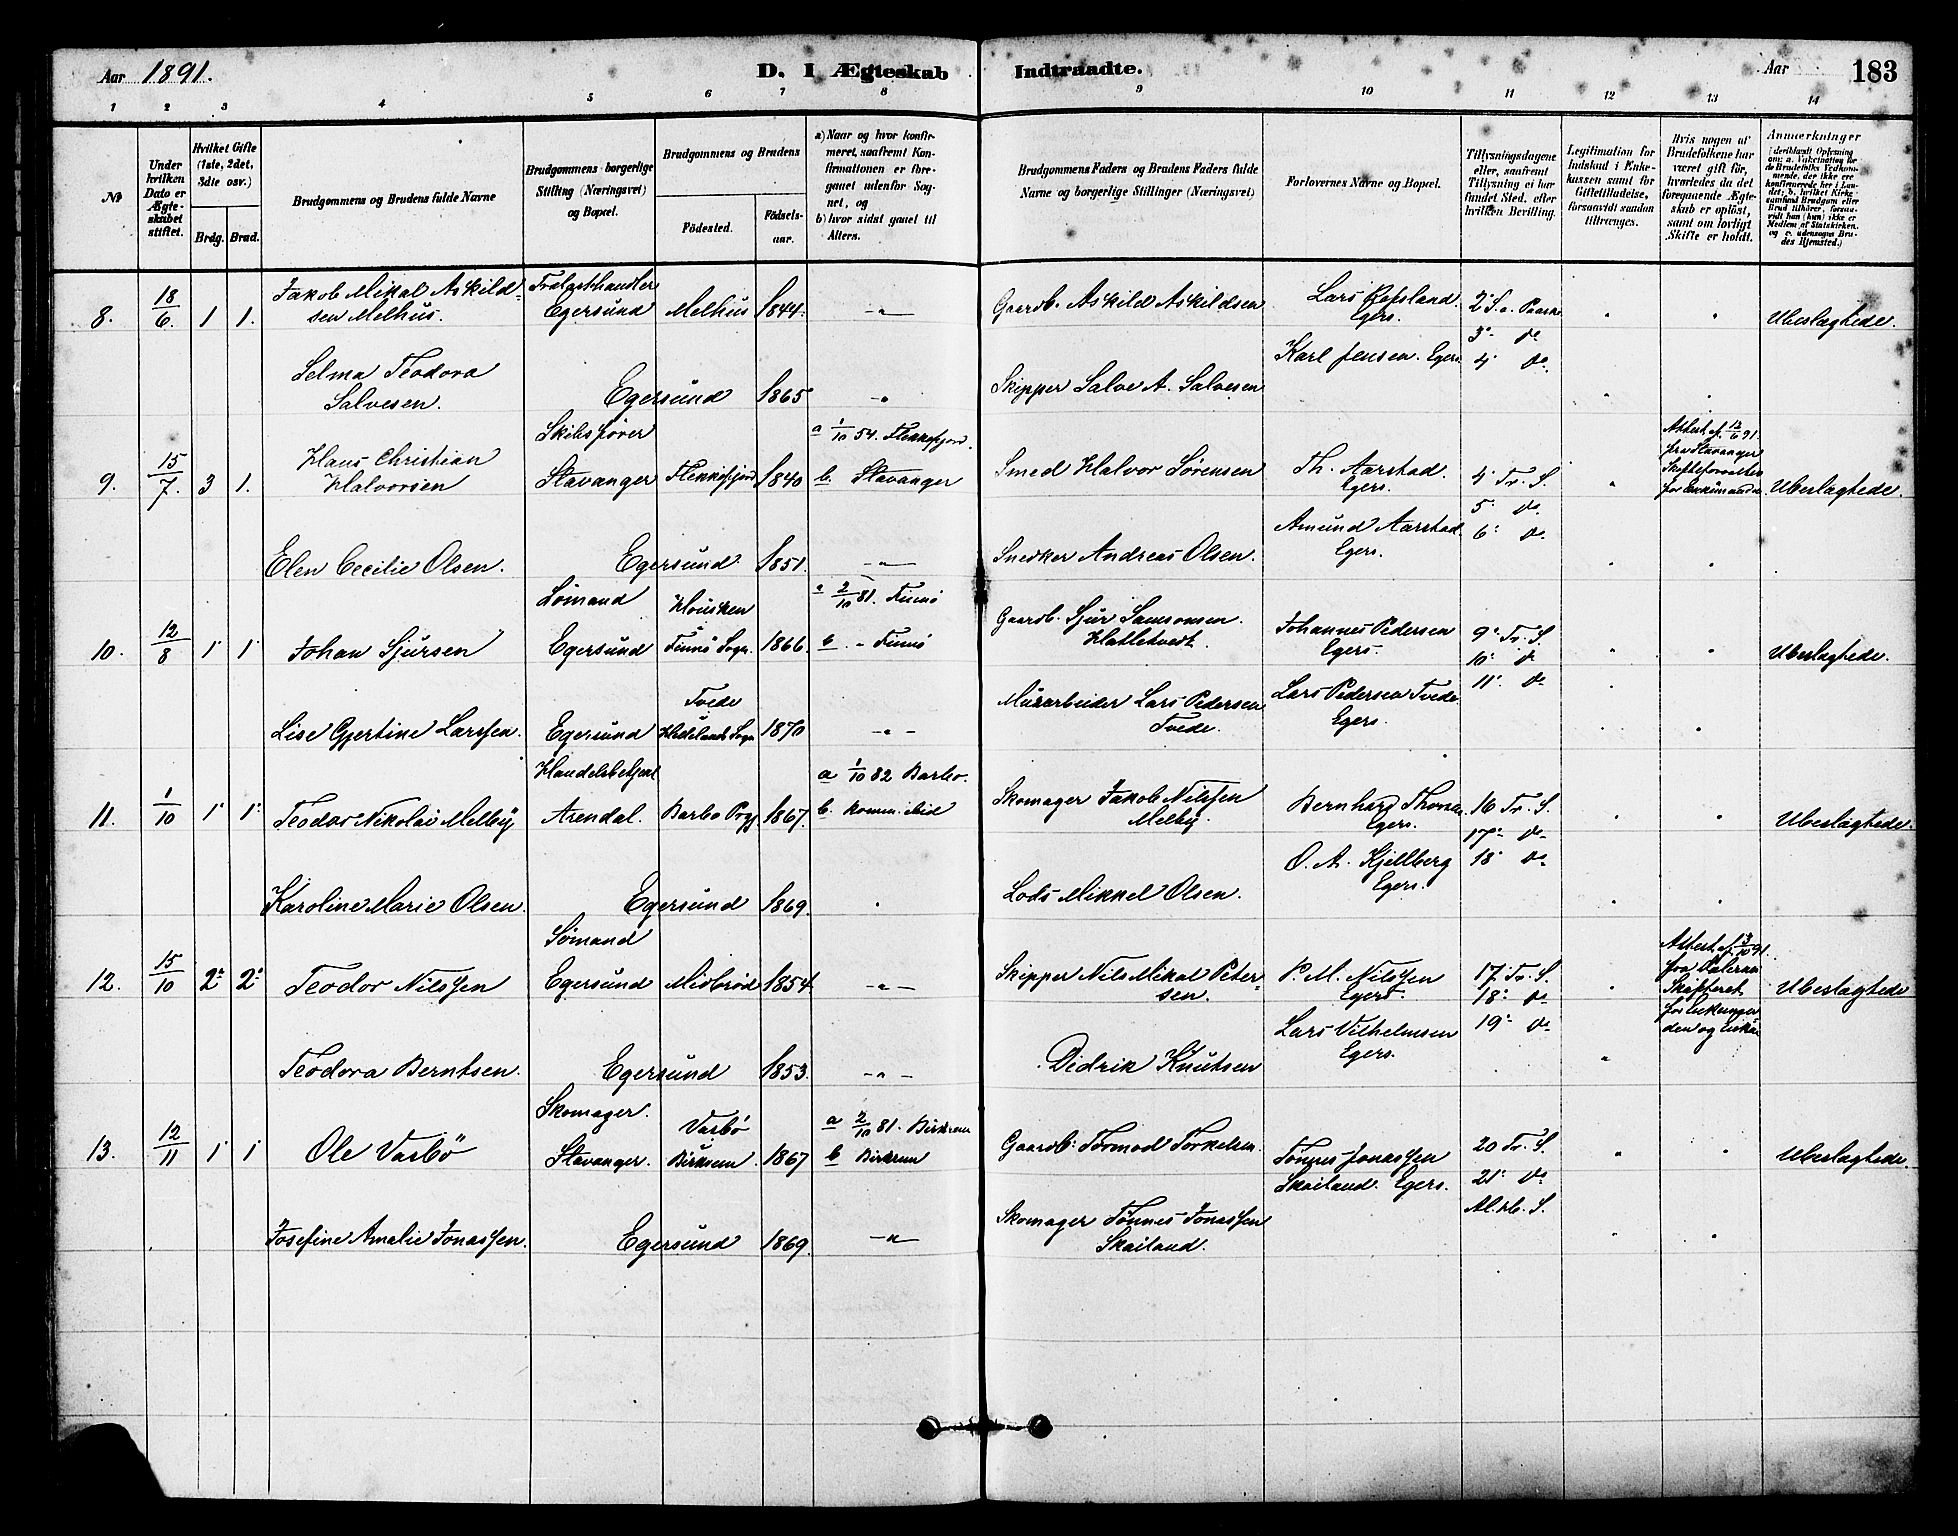 Aar 1891. D. I Ægteskab Indtraadte. Aar 183
1 2 3 4 5 6 7 8 9 10 11 12 13 14
№
Under hvilken Dato er Ægteskabet stiftet.
Hvilket Gifte (1ste, 2det, 3die osv.)
Brdg. Brud.
Brudgommens og Brudens fulde Navne
Brudgommens borgerlige Stilling (Næringsvei) og Bopæl.
Brudgommens og Brudens
Födested. Födselsaar.
a) Naar og hvor konfirmeret, saafremt Konfirmationen er foregaaet udenfor Sognet, og
b) hvor sidst gaaet til Alters.
Brudgommens Faders og Brudens Faders fulde Navne og borgerlige Stillinger (Næringsvei)
Forlovernes Navne og Bopæl.
Tillysningsdagene eller, saafremt Tillysning ei har fundet Sted, efter hvilken Bevilling.
Legitimation for Indskud i Enkekassen samt for Giftetilladelse, forsaavidt saadan tiltrænges.
Hvis nogen af Brudefolkene har været gift før, hvorledes da det foregaaende Ægteskab er oplöst, samt om lovligt Skifte er holdt.
Anmerkninger
8. 18/6. 1 1. Jakob Mikal Askildsen Melhus. Egersund Melhus 1844. -"- Gaardb. Askild Askildsen Lars Egers. 2' S. e. Paaske 3' do 4' do Ubeslægtede.
Selma Teodora Salvesen. Egersund 1865 -"- Skipper Salve A. Salvesen Karl Jensen. Egers.
9. 15/7. 3 1. Hans Christian Halvorsen Skibsfører Stavanger Flekkefjord 1840 a 1/10 54. Flekkefjord. b. Stavanger Smed Halvor Sørensen Th. Aarstad. Egers. 4' Tr. S. 5' do 6' do Attest af 12/6 91. fra Stavanger Skifteforvalter for Enkemanden Ubeslægtede.
Elen Cecilie Olsen. Egersund 1851. -"- Snedker Andreas Olsen. Amund Aarstad Egers.
10. 12/8 1' 1' Johan Sjursen Sømand Egersund 1866. a 2/10 81. b. Gaardb. Sjur Samsonsen. Hatletvedt. Johannes Pedersen Egers. 9' Tr. S. 10' do 11' do Ubeslægtede.
Lise Gjertine Larssen. Egersund Tvede Sogn 1870 -"- Murarbeider Lars Pedersen Tvede. Lars Pedersen Tvede Egers.
11. 1/10 1' 1' Teodor Nikolai Melby Handelsbetjent Arendal. Barbo Prgj 1867. a 1/10 82 Barbo. b. komm. ibid Skomager Jakob Nilssen Melby. Bernhard Egers. 16 Tr. S. 17' do 18' do Ubeslægtede.
Karoline Marie Olsen. Egersund 1869. Lods Mikkel Olsen. O. A. Kjellberg Egers.
12. 15/10 2' 2' Teodor Nilssen Sømand Egersund Midbrød 1854 -"- Skipper Nils Mikal Petersen. P. M. Nilssen Egers. 17' Tr. S. 18' do 19' do Attest af 3/10 91. fra Dalerne Skifteret for Enkemanden og Enken Ubeslægtede
Teodora Berntsen. Egersund 1853. -"- Didrik Knutsen Lars Vilhelmsen Egers.
13. 12/11 1' 1 Ole Varbö Skomager. Stavanger. Varbö Birkrem 1867 a 2/10 81. Birkrem b Birkrem Gaardb: Tormod Torkelsen. Tönnes Jonassen Skailand. Egers. 20 Tr. S. 21' do Al. hl. S. Ubeslægtede.
Josefine Amalie Jonassen. Egersund 1869. -"- Skomager Tönnes Jonassen Skailand.